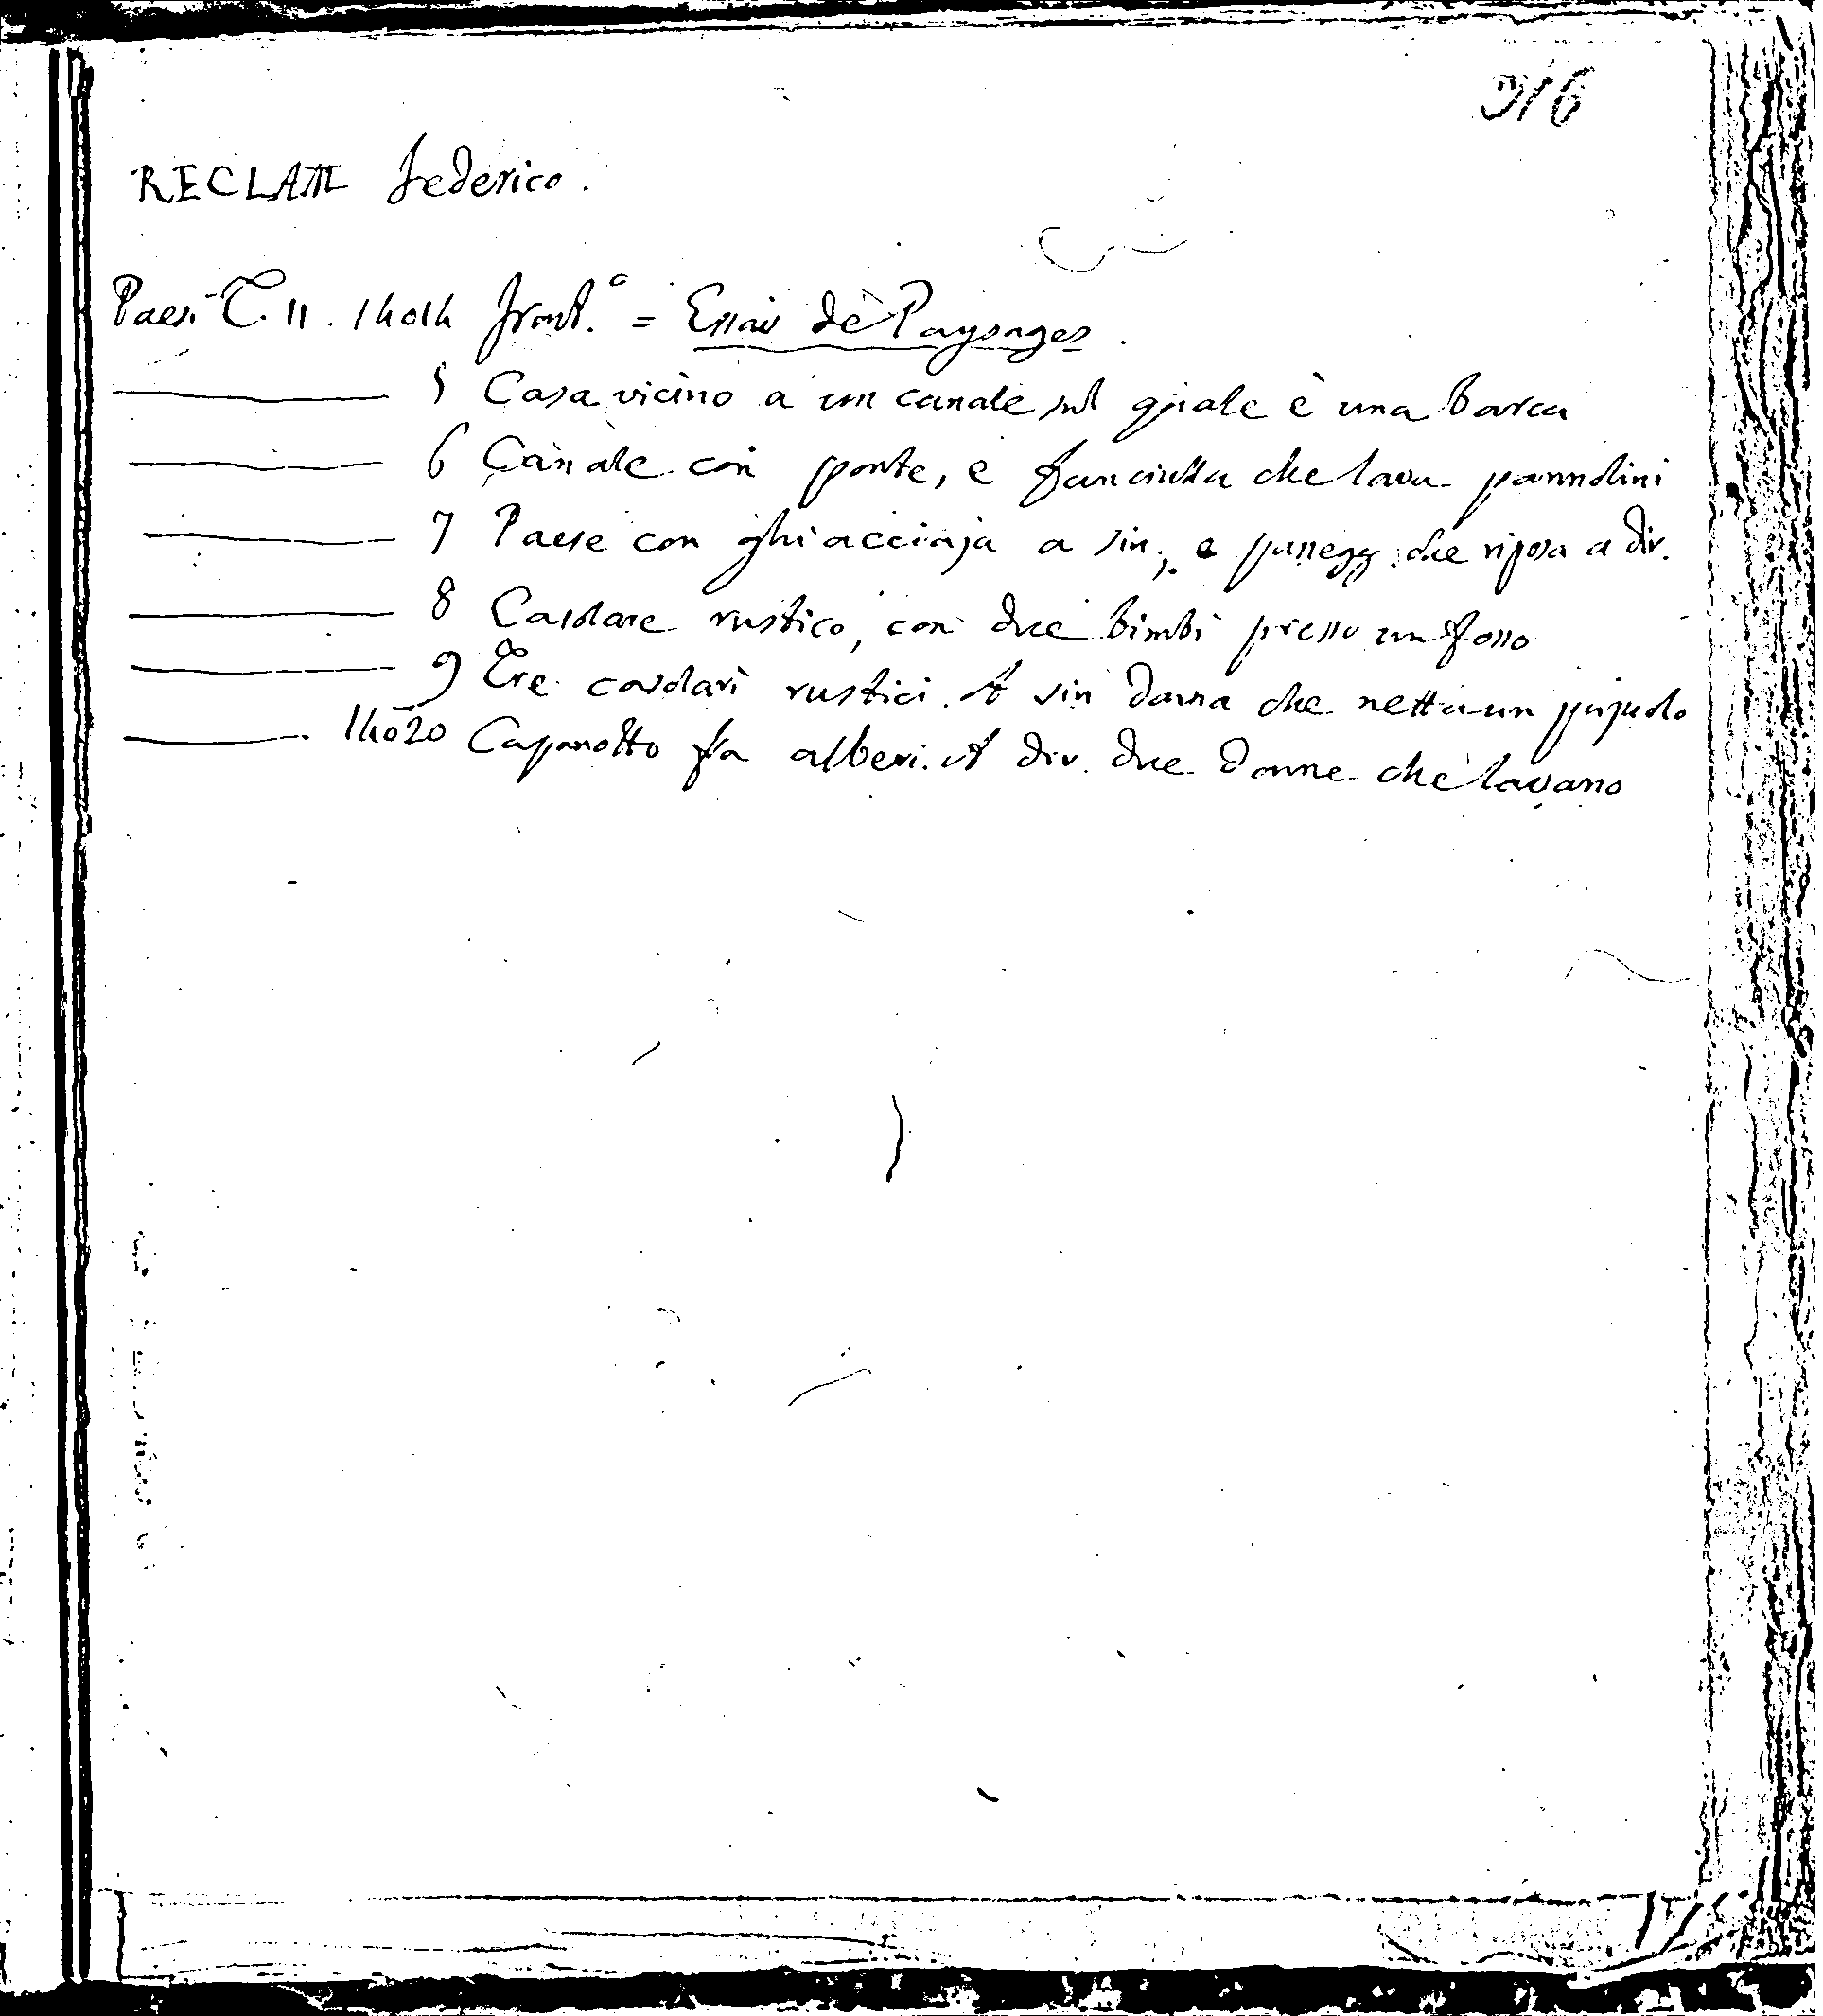 916
RECLAM Federico.
Paesi T. 11. 14014 front.º = Essais de Paysages.
5 Casa vicino a un canale sul quale è una barca
6 Canale con ponte, e fanciulla che lava pannolini
7 Paese con ghiacciaja a sin., e passegg. che riposa a dir.
8 Casolare rustico, con due bimbi presso un fosso
9 Tre casolari rustici. A sin donna che netta un pajuolo
14020 Capanotto fra alberi. A dir. due donne che lavano